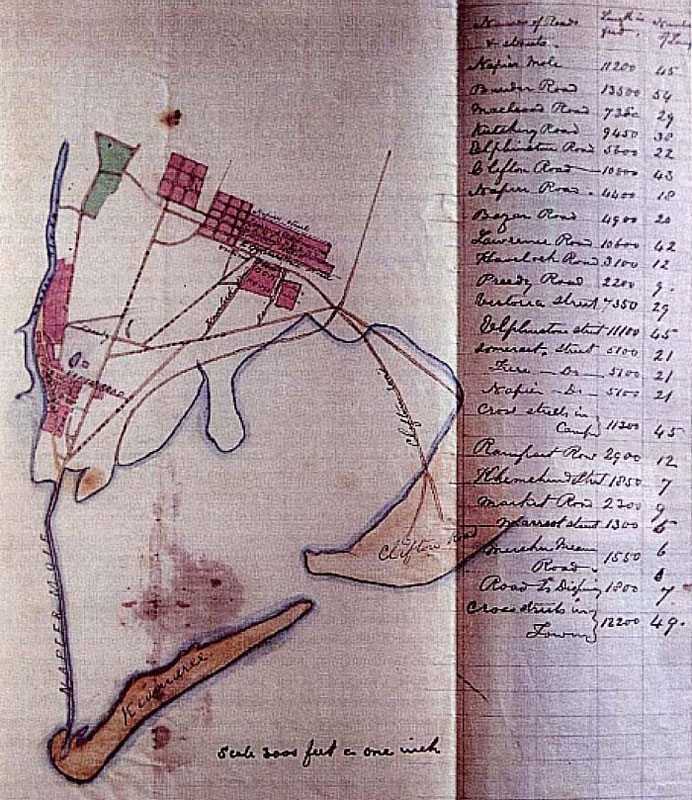 Names of Roads & streets. Length in feet. Number of Lamps
Napier Mole 11200 45
Bunder Road 13500 54
Macleod Road 7350 29
Kutchery Road 9450 38
Elphinston Road 5600 22
Clifton Road 10800 43
Napier Road. 4400 18
Bazar Road 4900 20
Lawrence Road 10600 42
Havelock Road 3100 12
Preedy Road 2200 9.
Victoria Street 7350 29
Elphinstone street 11100 45
Somerset. Street 5100 21
Frere - Do - 5100 21
Napier - Do - 5100 21
Cross streets in Camp 11300 45
Rampart Row 2900 12
Khemchund Street 1850 7
Market Road 2300 9
Narrow street 1300 5
Road. 1550 6
Road to Dispy 1800 7
Cross streets in Town 12200 49.
Clifton Road
Clifton Road
NAPIER MOLE
Kiamaree
Scale 2000 feet = one inch